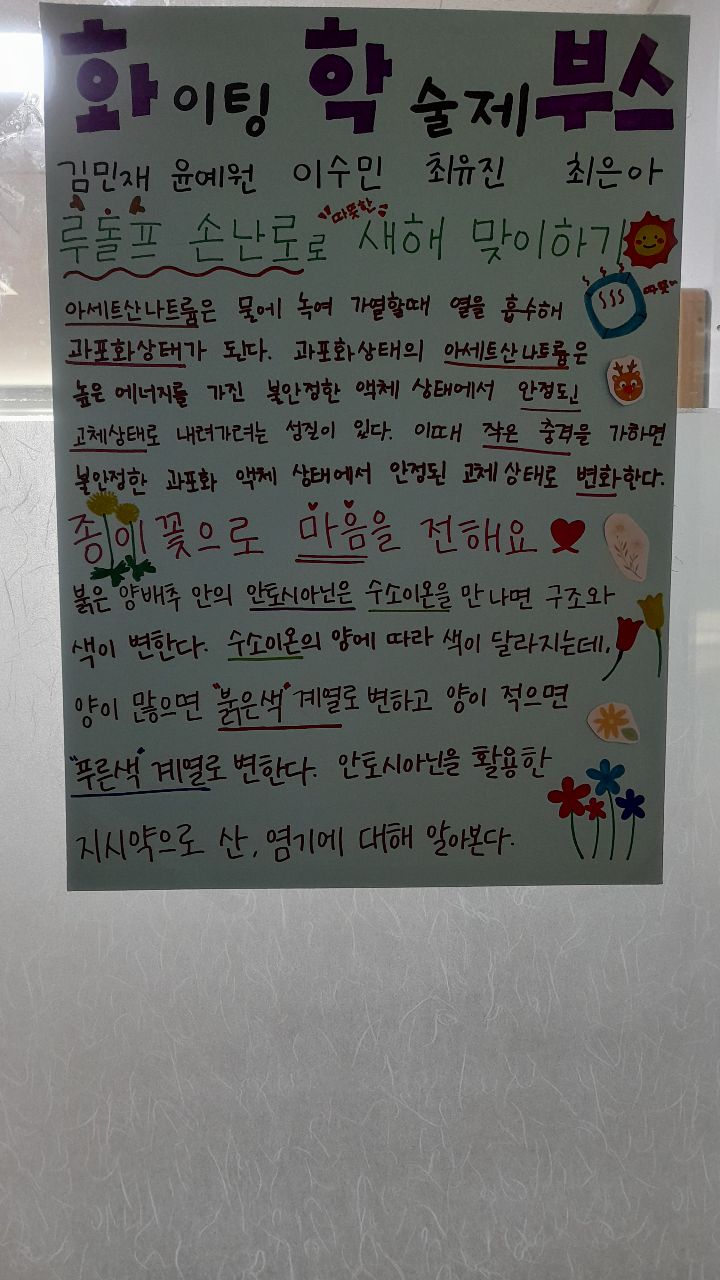 화이팅 학술제부스
김민재 윤예원 이수민 최유진 최은아
루돌프 손난로로 따뜻한 새해 맞이하기
따뜻~
아세트산나트륨은 물에 녹여 가열할때 열을 흡수해
과포화상태가 된다. 과포화상태의 아세트산나트륨은
높은 에너지를 가진 불안정한 액체 상태에서 안정된
고체상태로 내려가려는 성질이 있다. 이때 작은 충격을 가하면
불안정한 과포화 액체 상태에서 안정된 고체 상태로 변화한다.
종이꽃으로 마음을 전해요
붉은 양배추 안의 안토시아닌은 수소이온을 만나면 구조와
색이 변한다. 수소이온의 양에 따라 색이 달라지는데,
양이 많으면 "붉은색" 계열로 변하고 양이 적으면
"푸른색" 계열로 변한다. 안토시아닌을 활용한
지시약으로 산, 염기에 대해 알아본다.